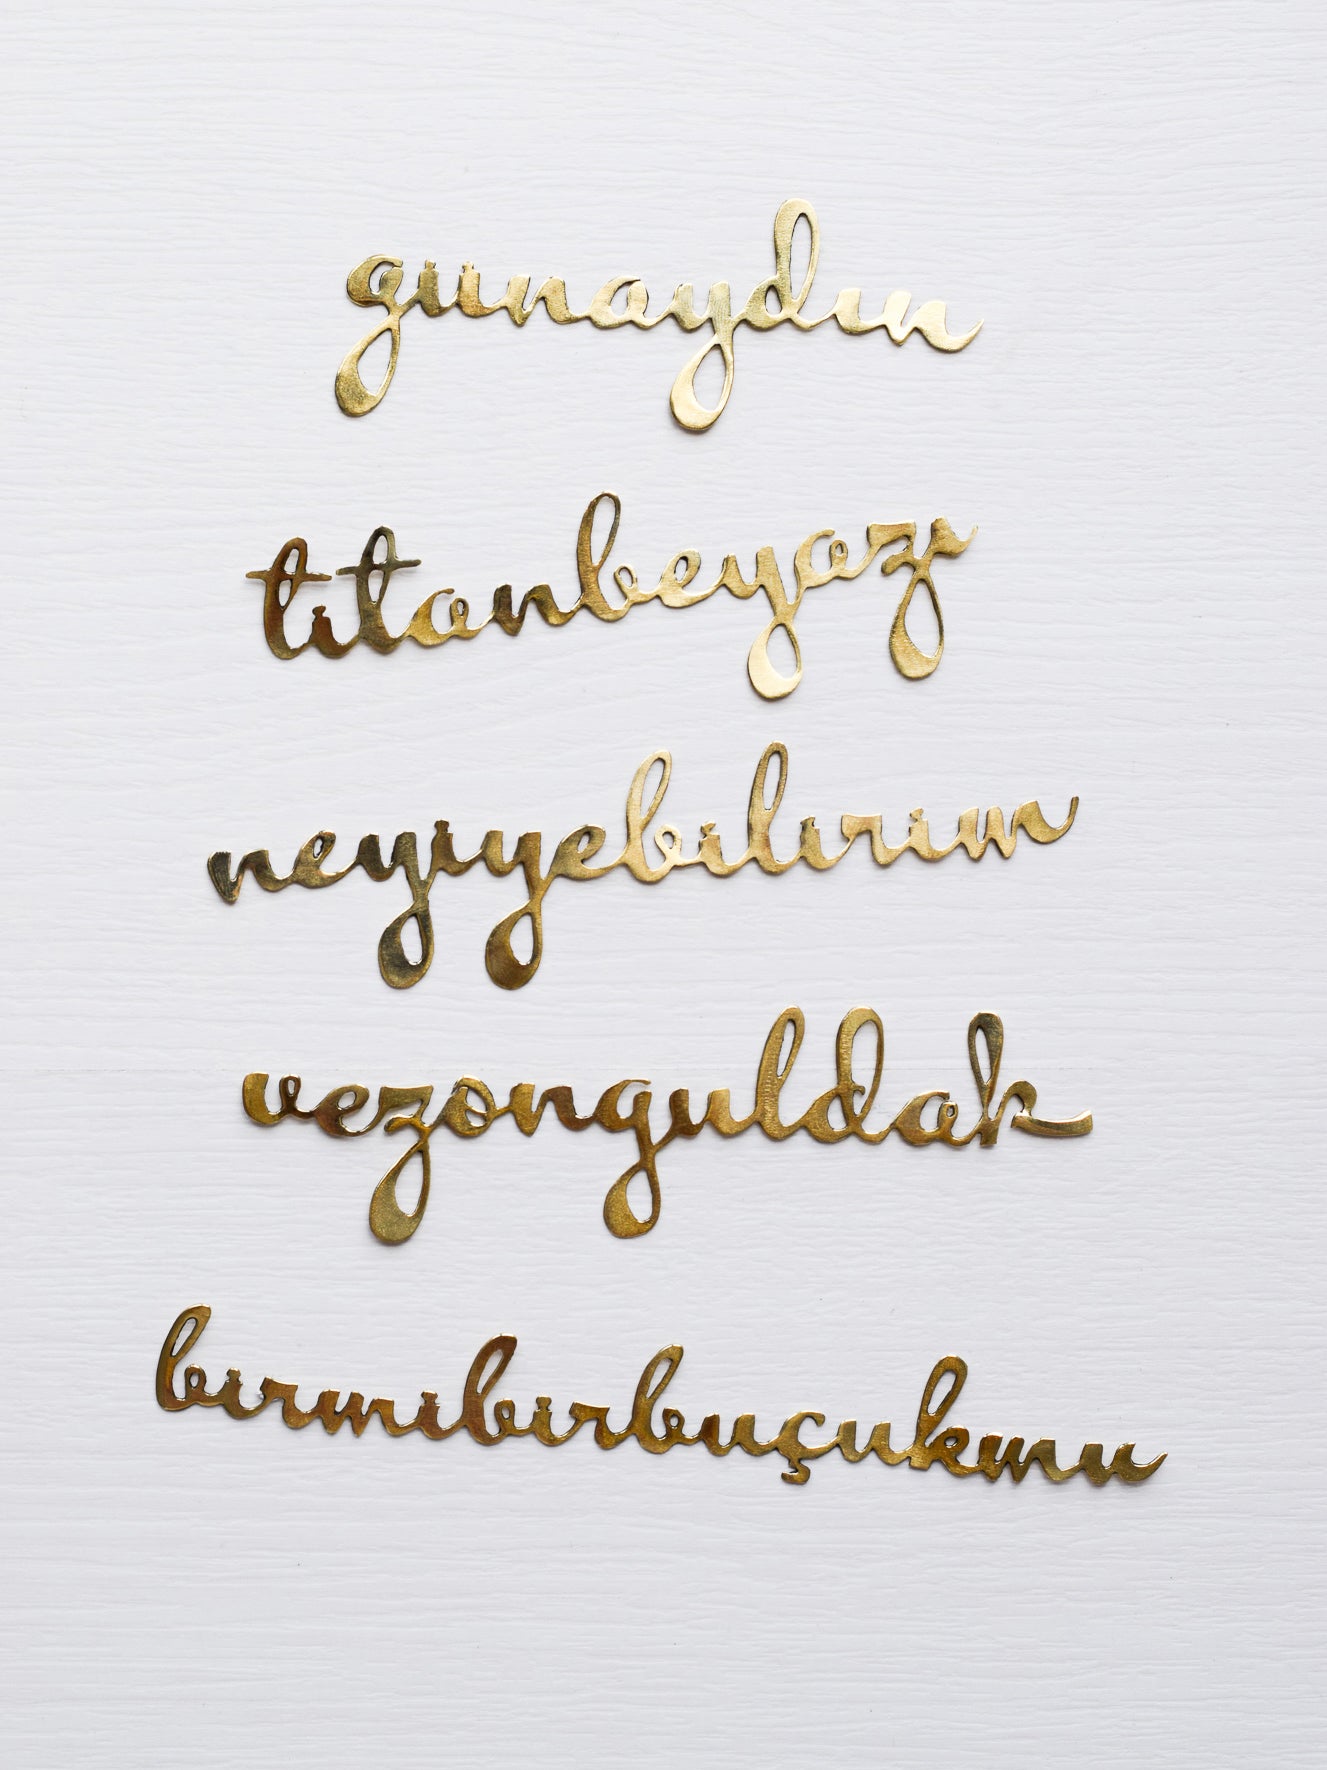 günaydın
titanbeyazı
neyiyebilirim
vezonguldak
birmibirbuçukmu